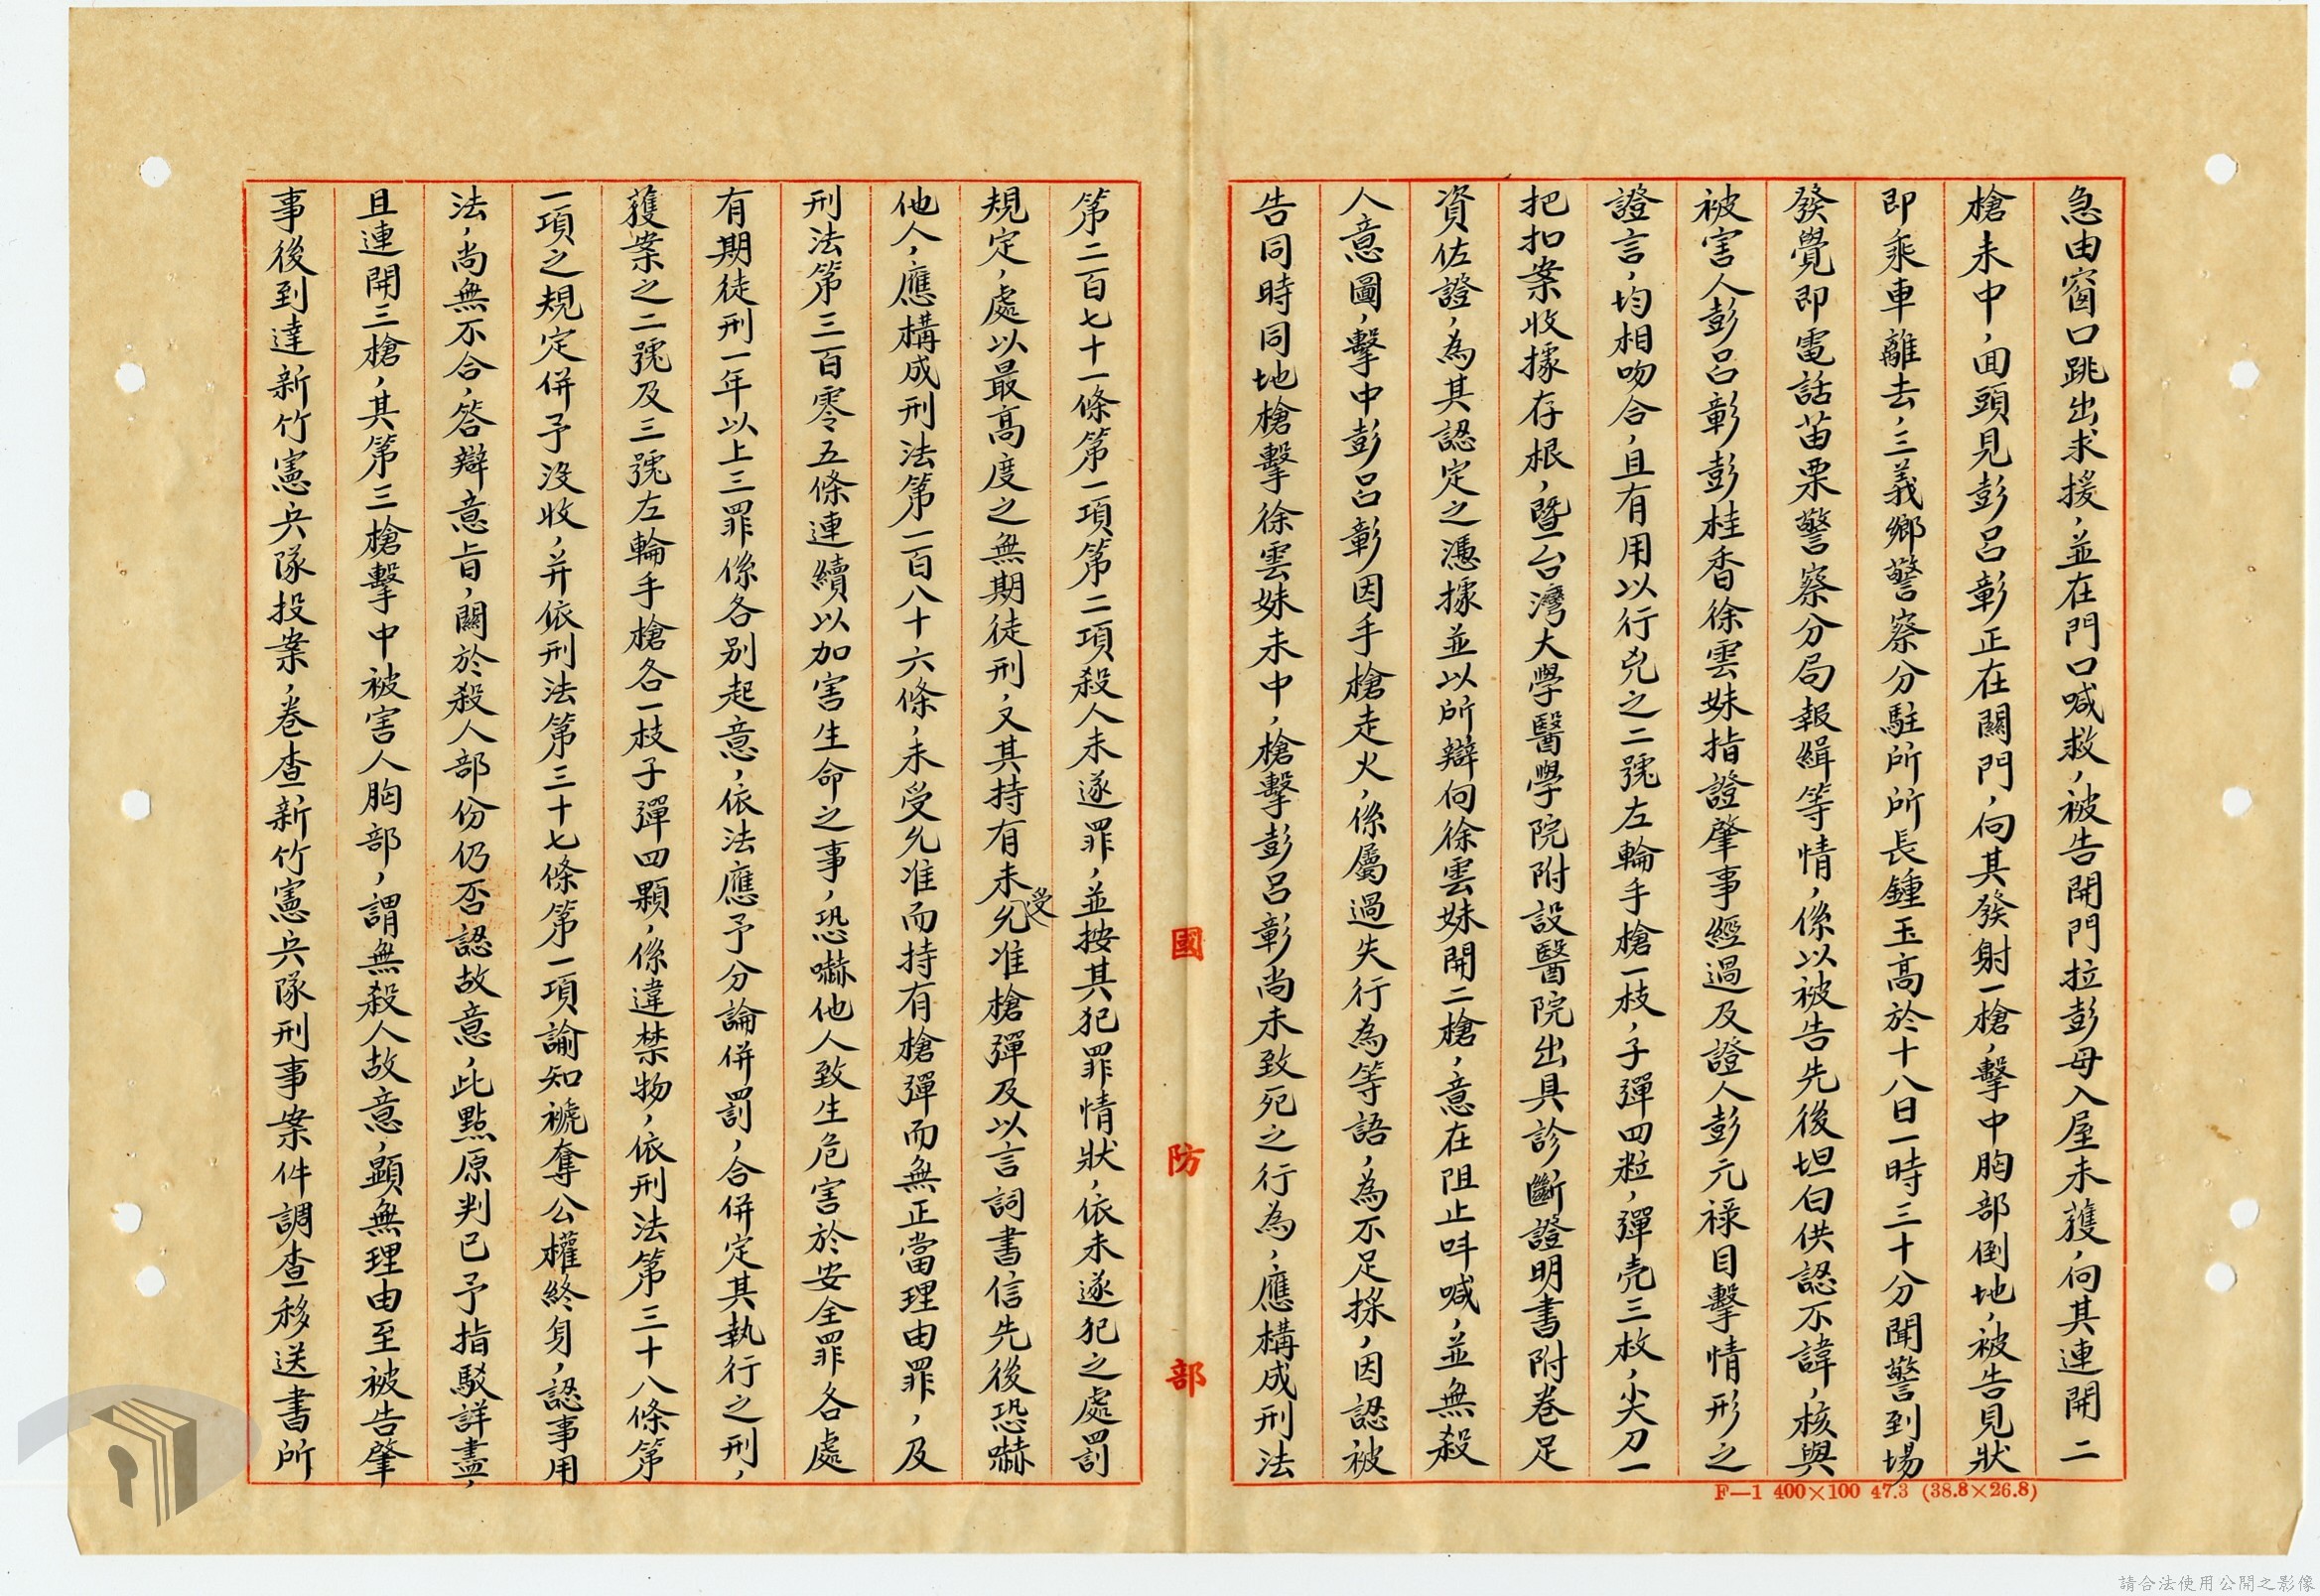 急由窗口跳出求援，並在門口喊救，被告開門拉彭母入屋未獲，向其連開二
槍未中，回頭見彭呂彰正在關門，向其發射一槍，擊中胸部倒地，被告見狀
即乘車離去，三義鄉警察分駐所所長鍾玉高於十八日一時三十分聞警到場
發覺即電話苗栗警察分局報緝等情，係以被告先後坦白供認不諱，核與
被害人彭呂彰彭桂香徐雲妹指證肇事經過及證人彭元祿目擊情形之
證言，均相吻合，且有用以行兇之二號左輪手槍一枝，子彈四粒，彈壳三枚，尖刀一
把扣案收據存根，暨台灣大學醫學院附設醫院出具診斷證明書附卷足
資佐證，為其認定之憑據並以所辯向徐雲妹開二槍，意在阻止呌喊，並無殺
人意圖，擊中彭呂彰因手槍走火，係屬過失行為等語，為不足採，因認被
告同時同地槍擊徐雲妹未中，槍擊彭呂彰尚未致死之行為，應構成刑法
國防部
第二百七十一條第一項第二項殺人未遂罪，並按其犯罪情狀，依未遂犯之處罰
規定，處以最高度之無期徒刑，又其持有未受允准槍彈及以言詞書信先後恐嚇
他人，應構成刑法第一百八十六條，未受允准而持有槍彈而無正當理由罪，及
刑法第三百零五條連續以加害生命之事，恐嚇他人致生危害於安全罪各處
有期徒刑一年以上三罪係各別起意，依法應予分論併罰，合併定其執行之刑，
獲案之二號及三號左輪手槍各一枝子彈四顆，係違禁物，依刑法第三十八條第
一項之規定併予沒收，并依刑法第三十七條第一項諭知褫奪公權終身，認事用
法，尚無不合，答辯意旨，關於殺人部份仍否認故意，此點原判已予指駁詳盡，
且連開三槍，其第三槍擊中被害人胸部，謂無殺人故意，顯無理由至被告肇
事後到達新竹憲兵隊投案，卷查新竹憲兵隊刑事案件調查移送書所
F—1 400×100 47.3 (38.8×26.8)
請合法使用公開之影像